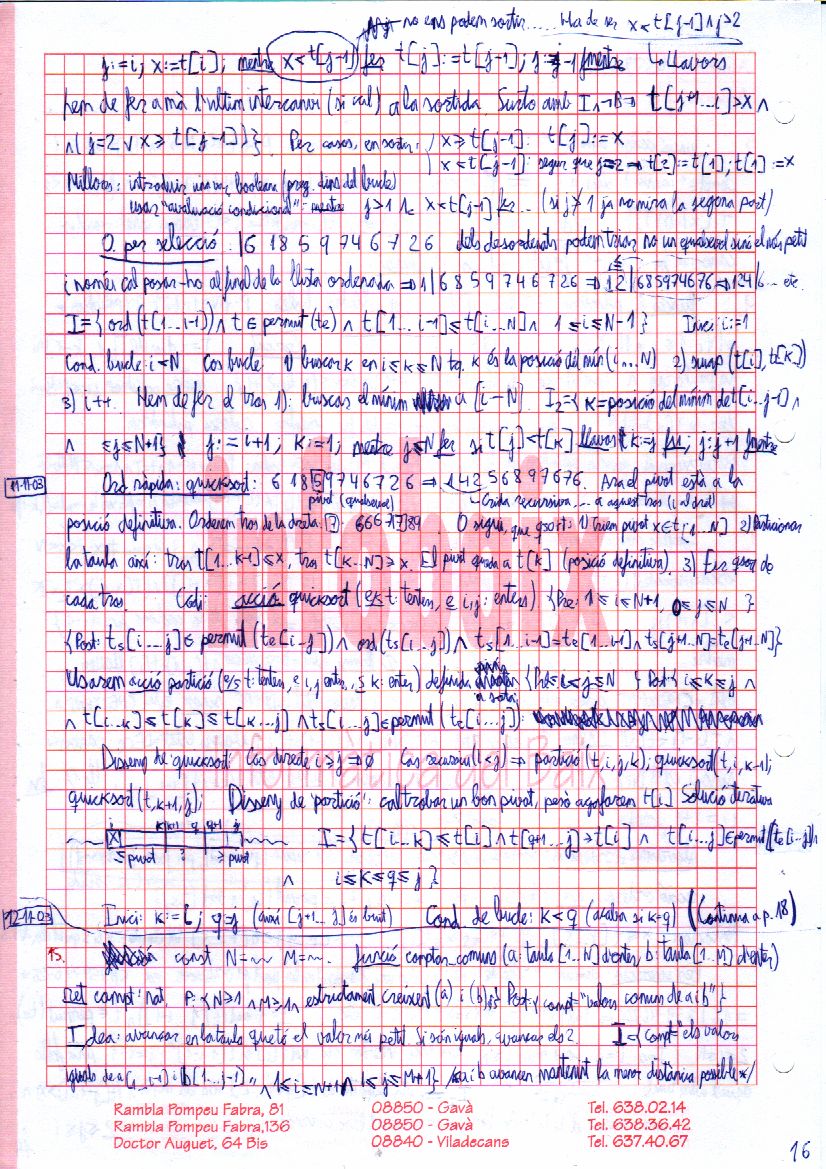 no ens podem sortir..... Ha de ser x<t[j-1] ∧ j>2
j:=i; x:=t[i]; mentre x<t[j-1] fer t[j]:=t[j-1]; j:=j-1 fmentre ↳ Llavors
hem de fer a mà l'últim intercanvi (si cal) a la sortida. Surto amb I ∧ ¬B ⇒ t[j+1...i]>x ∧
∧ (j=2 ∨ x≥t[j-1])}. Per casos, en sortir: x≥t[j-1]: t[j]:=x
x<t[j-1]: segur que j=2 ⇒ t[2]:=t[1]; t[1]:=x
Millores: introduir una var booleana (preg. dins del bucle)
usar "avaluació condicional" - mentre j>1 ∧c x<t[j-1] fer... (si j≯1 ja no mira la segona part)
O. per selecció. |6 18 5 9 7 4 6 7 2 6 dels desordenats podem triar no un qualsevol sinó el més petit
i només cal posar-ho al final de la llista ordenada ⇒ 1|6 8 5 9 7 4 6 7 2 6 ⇒ 12|685974676 ⇒ 124|6... etc.
I={ord(t[1...i-1]) ∧ t ∈ permut(te) ∧ t[1...i-1]≤t[i...N] ∧ 1≤i≤N-1} Inici i:=1
Cond. bucle i<N Cos bucle 1) buscar k en i≤k≤N tq. k és la posició del mín(i...N) 2) swap (t[i],t[k])
3) i++. Hem de fer el tros 1): buscar el mínim a [i-N] I2={k=posició del mínim de t[i...j-1] ∧
∧ ≤j≤N+1} j:=i+1; k:=1; mentre j≤N fer si t[j]<t[k] llavors k:=j fsi; j:=j+1 fmentre
11-11-03 Ord ràpida: quicksort: 6 18 5 9 7 4 6 7 2 6 ⇒ 1 4 2 5 6 8 9 7 6 7 6. Ara el pivot està a la
pivot (qualsevol) Crida recursiva... a aquest tros (i al dret)
posició definitiva. Ordenem tros de la dreta: 7: 666 7 7 89. O sigui, que qsort: 1) triem pivot x∈t[1...N] 2) Particionar
la taula així: tros t[1...k-1]≤x, tros t[k...N]≥x. El pivot queda a t[k] (posició definitiva). 3) Fer qsort de
cada tros. Codi: acció quicksort (e/s t: tenters, e i,j: enters) {Pre: 1≤i≤N+1, 0≤j≤N }
{Post: ts[i...j]∈permut(te[i-j]) ∧ ord(ts[i...j]) ∧ ts[1...i-1]=te[1...i-1] ∧ ts[j+1...N]=te[j+1..N]}
Usarem acció partició (e/s t: tenters, e i,j enters, s k: enter) definida {Pre: 1≤i<j≤N } Post: { i≤k≤j ∧
∧ t[i...k]≤t[k]≤t[k...j] ∧ ts[i...j]∈permut(te[i...j]):
Disseny de quicksort: Cas directe i≥j ⇒ ∅ Cas recursiu (i<j) ⇒ partició(t,i,j,k); quicksort(t,i,k-1);
quicksort(t,k+1,j); Disseny de 'partició': cal trobar un bon pivot, però agafarem t[i] Solució iterativa
i k k+1 q q+1 j
X ≤pivot ? >pivot I={t[i...k]≤t[i] ∧ t[q+1...j]>t[i] ∧ t[i...j]∈permut(te[i-j]) ∧
∧ i≤k≤q≤j}
12-11-03 Inici: k:=i; q:=j (així [j+1...j] és buit) Cond. de bucle: k<q (acaba si k=q) (Continua a p. 18)
15. const N=~ M=~. funció comptar_comuns (a: taula [1..N] d'enter, b: taula [1..M] d'enter)
ret compt: nat. P: {N≥1 ∧ M≥1 ∧ estrictament_creixent (a) i (b)} Post: {compt="valors comuns de a i b"}
Idea: avançar en la taula que té el valor més petit. Si són iguals, avançar els 2. I={compt="els valors
iguals de a(1...i-1) i b(1...j-1)" ∧ 1≤i≤N+1 ∧ 1≤j≤M+1} /*a i b avancen mantenint la menor distància possible*/
infobaix
Informàtica del Baix
Rambla Pompeu Fabra, 81 08850 - Gavà Tel. 638.02.14
Rambla Pompeu Fabra,136 08850 - Gavà Tel. 638.36.42
Doctor Auguet, 64 Bis 08840 - Viladecans Tel. 637.40.67
16